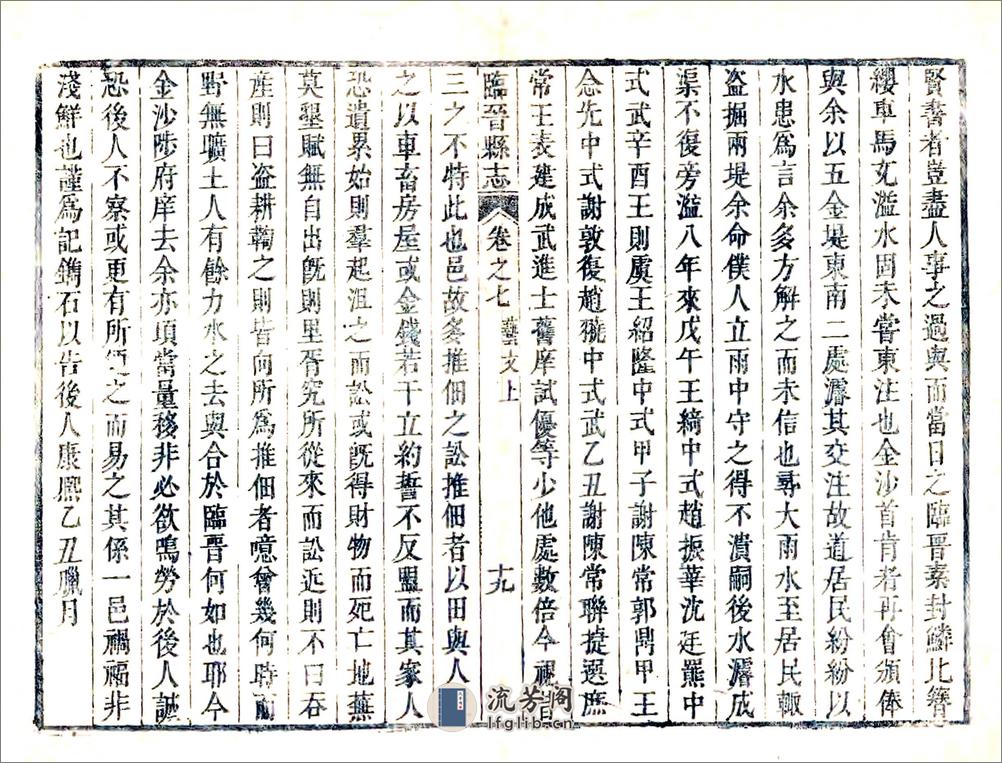 賢書者豈盡人事之過與而當日之臨晉素封鱗比簪
纓車馬充溢水固未嘗東注也金沙首肯者再會頒俸
與余以五金堤東南二處濬其交注故道居民紛紛以
水患爲言余多方解之而未信也尋大雨水至居民輙
盜掘兩堤余命僕人立雨中守之得不潰嗣後水濬成
渠不復旁溢八年來戊午王綺中式趙振華沈廷羆中
式武辛酉王則虞王紹隆中式甲子謝陳常郭鼎甲王
念先中式謝敦復趙獬中式武乙丑謝陳常聯捷選庶
常王表建成武進士舊庠試優等少他處數倍今視昔
臨晉縣志 卷之七 藝文上 十九
三之不特此也邑故多推佃之訟推佃者以田與人
之以車畜房屋或金錢若干立約誓不反盟而其家人
恐遺累始則羣起沮之而訟或旣得財物而死亡地蕪
莫墾賦無自出旣則里胥究所從來而訟近則不曰吞
産則曰盜耕鞫之則皆向所爲推佃者噫曾幾何時而
野無曠土人有餘力水之去與合於臨晉何如也耶今
金沙陟府庠去余亦項當量移非必欲鳴勞於後人誠
恐後人不察或更有所 之而易之其係一邑禍福非
淺鮮也謹爲記鐫石以告後人康熙乙丑臘月
流芳阁
lfglib.cn